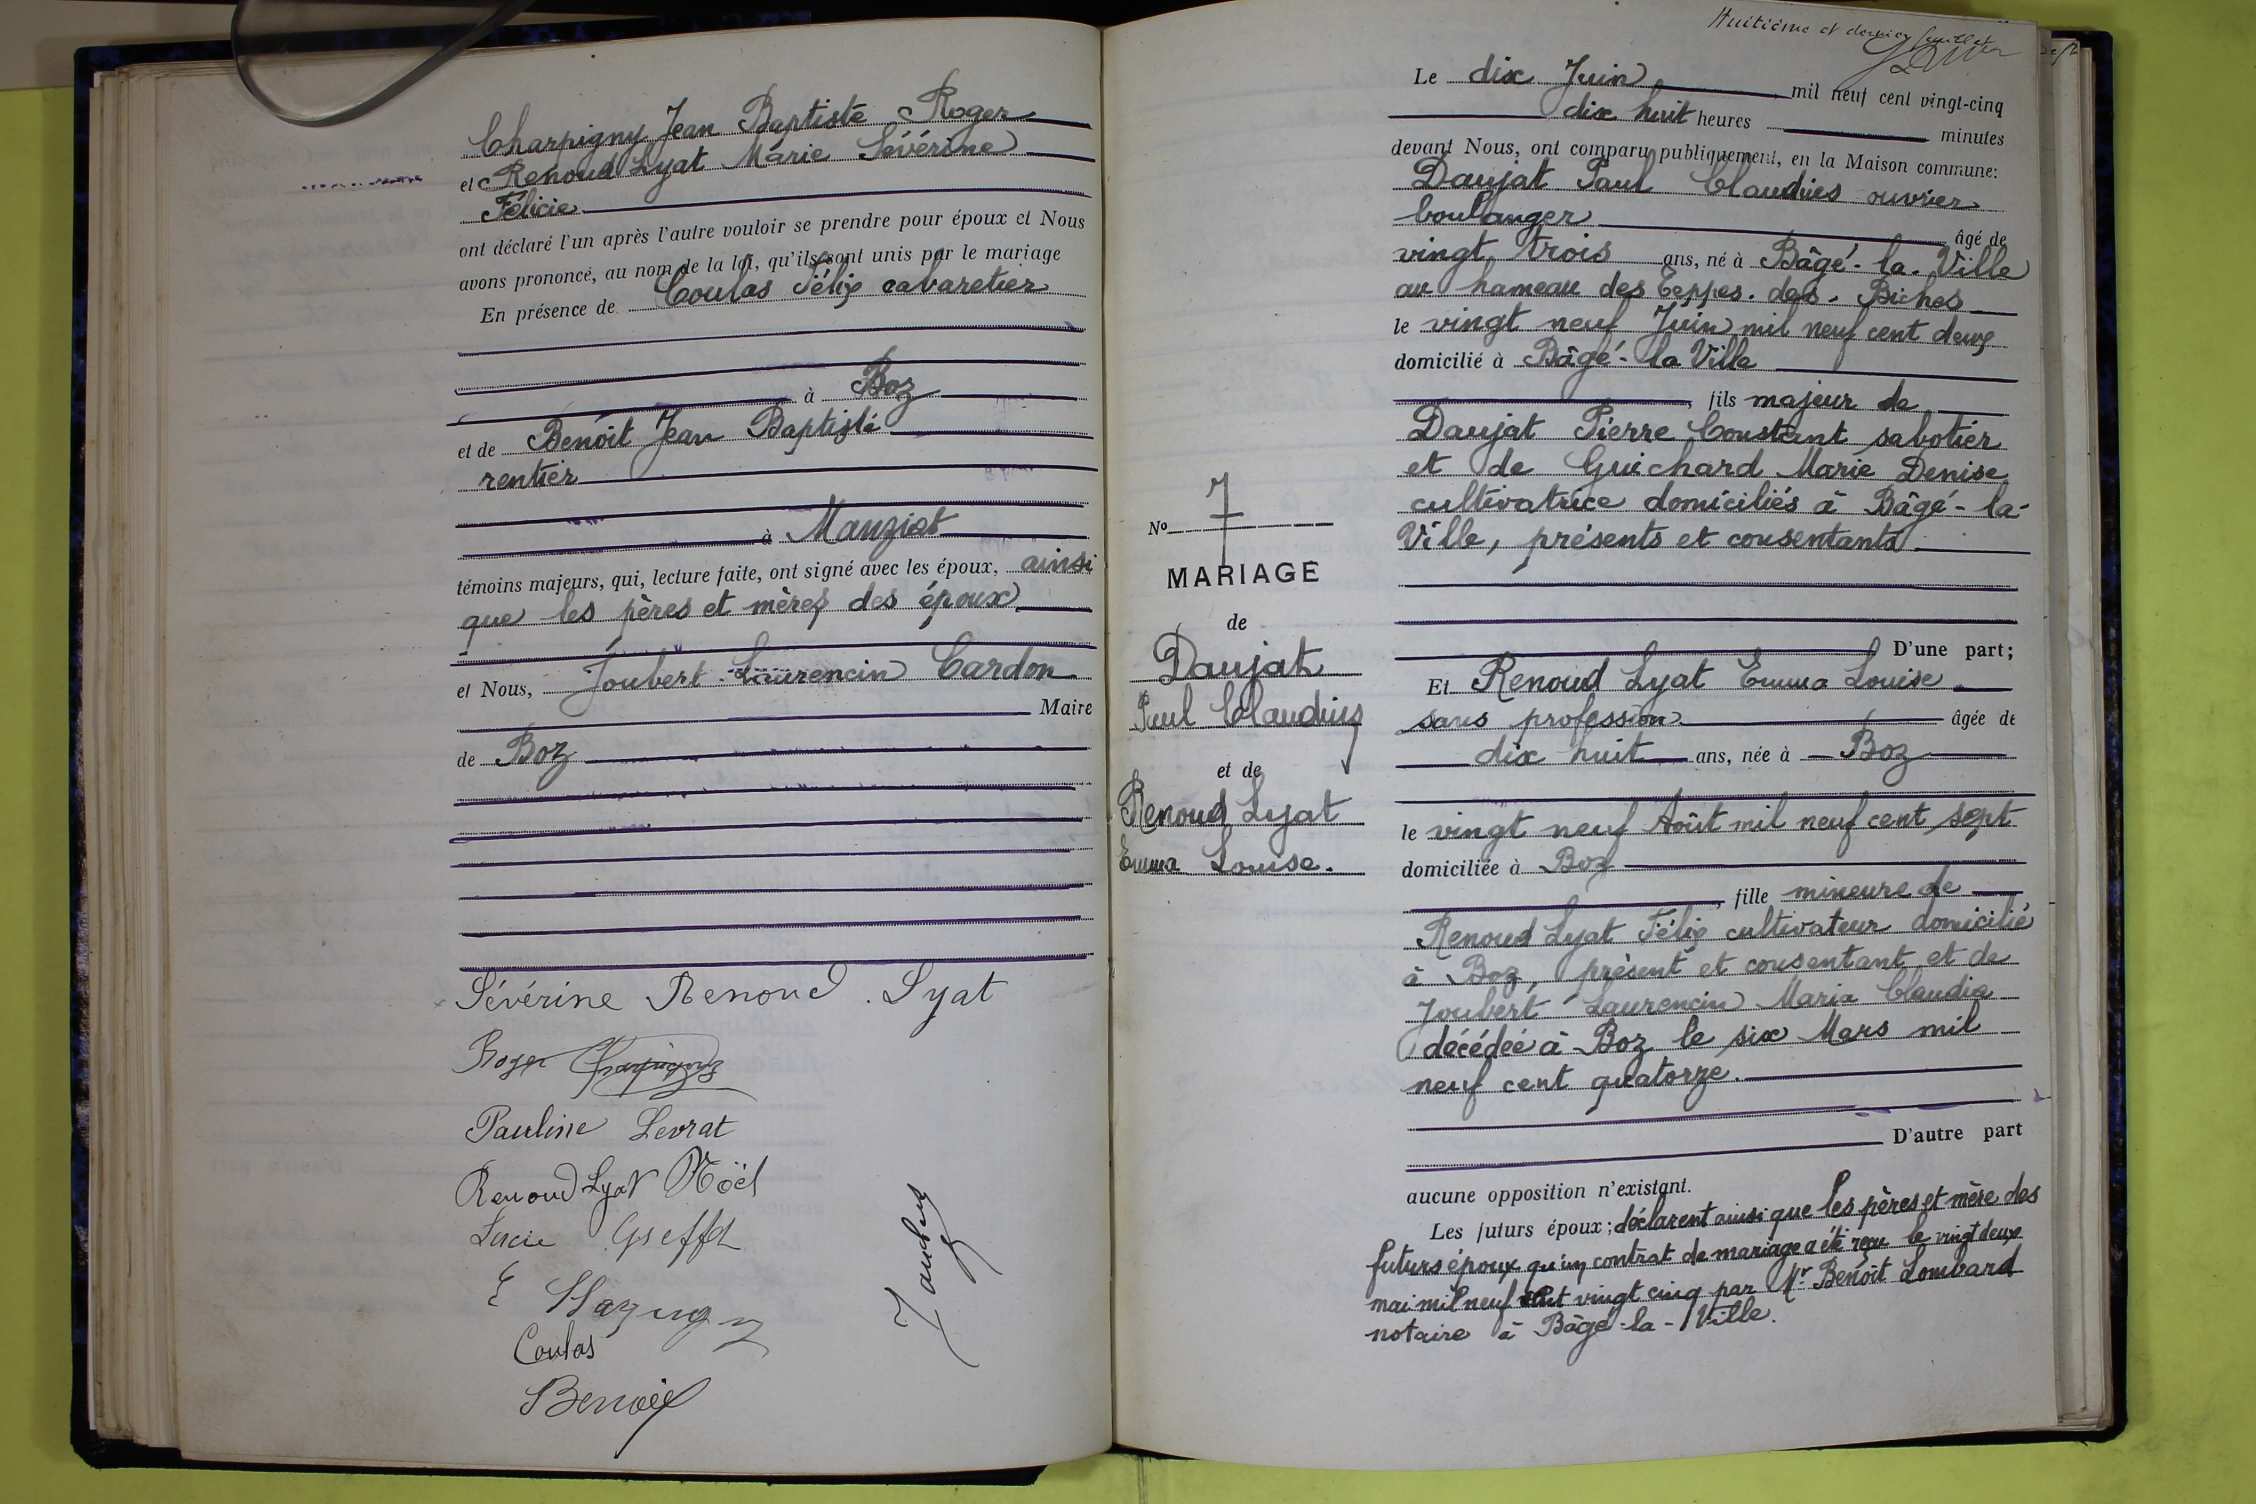 Charpigny Jean Baptiste Roger
et Renoud Lyat Marie Sévérine
Félicie
ont déclaré l'un après l'autre vouloir se prendre pour époux et Nous
avons prononcé, au nom de la loi, qu'ils sont unis par le mariage
En présence de Coulas Félix cabaretier
à Boz
et de Benoit Jean Baptiste
rentier
à Manziat
témoins majeurs, qui, lecture faite, ont signé avec les époux, ainsi
que les pères et mères des époux
et Nous, Joubert Laurencin Cardon
Maire
de Boz
Sévérine Renoud . Lyat
Roger Charpigny
Pauline Levrat
Renoud Lyat Noël
Lucie
E
Coulas
Benoit
Huitième et dernier feuillet
Le dix Juin mil neuf cent vingt-cinq
dix huit heures minutes
devant Nous, ont comparu publiquement, en la Maison commune:
Daujat Paul Claudius ouvrier
boulanger âgé de
vingt trois ans, né à Bâgé-la-Ville
au hameau des Eeppes-des-Biches
le vingt neuf Juin mil neuf cent deux
domicilié à Bâgé-la Ville
, fils majeur de
Daujat Pierre Constant sabotier
et de Guichard Marie Denise
cultivatrice domiciliés à Bâgé-la-
Ville, présents et consentants
D'une part;
No 7
MARIAGE
de
Daujat
Paul Claudius
et de
Renoud Lyat
Emma Louise.
Et Renoud Lyat Emma Louise
sans profession âgée de
dix huit ans, née à Boz
le vingt neuf Août mil neuf cent sept
domiciliée à Boz
, fille mineure de
Renoud Lyat Félix cultivateur domicilié
à Boz, présent et consentant et de
Joubert Laurencin Maria Claudia
décédée à Boz le six Mars mil
neuf cent quatorze.
D'autre part
aucune opposition n'existant.
Les futurs époux; déclarent ainsi que les pères et mère des
futurs époux qu'un contrat de mariage a été reçu le vingt deux
mai mil neuf cent vingt cinq par Mr Benoit Lombard
notaire à Bâgé-la-Ville.